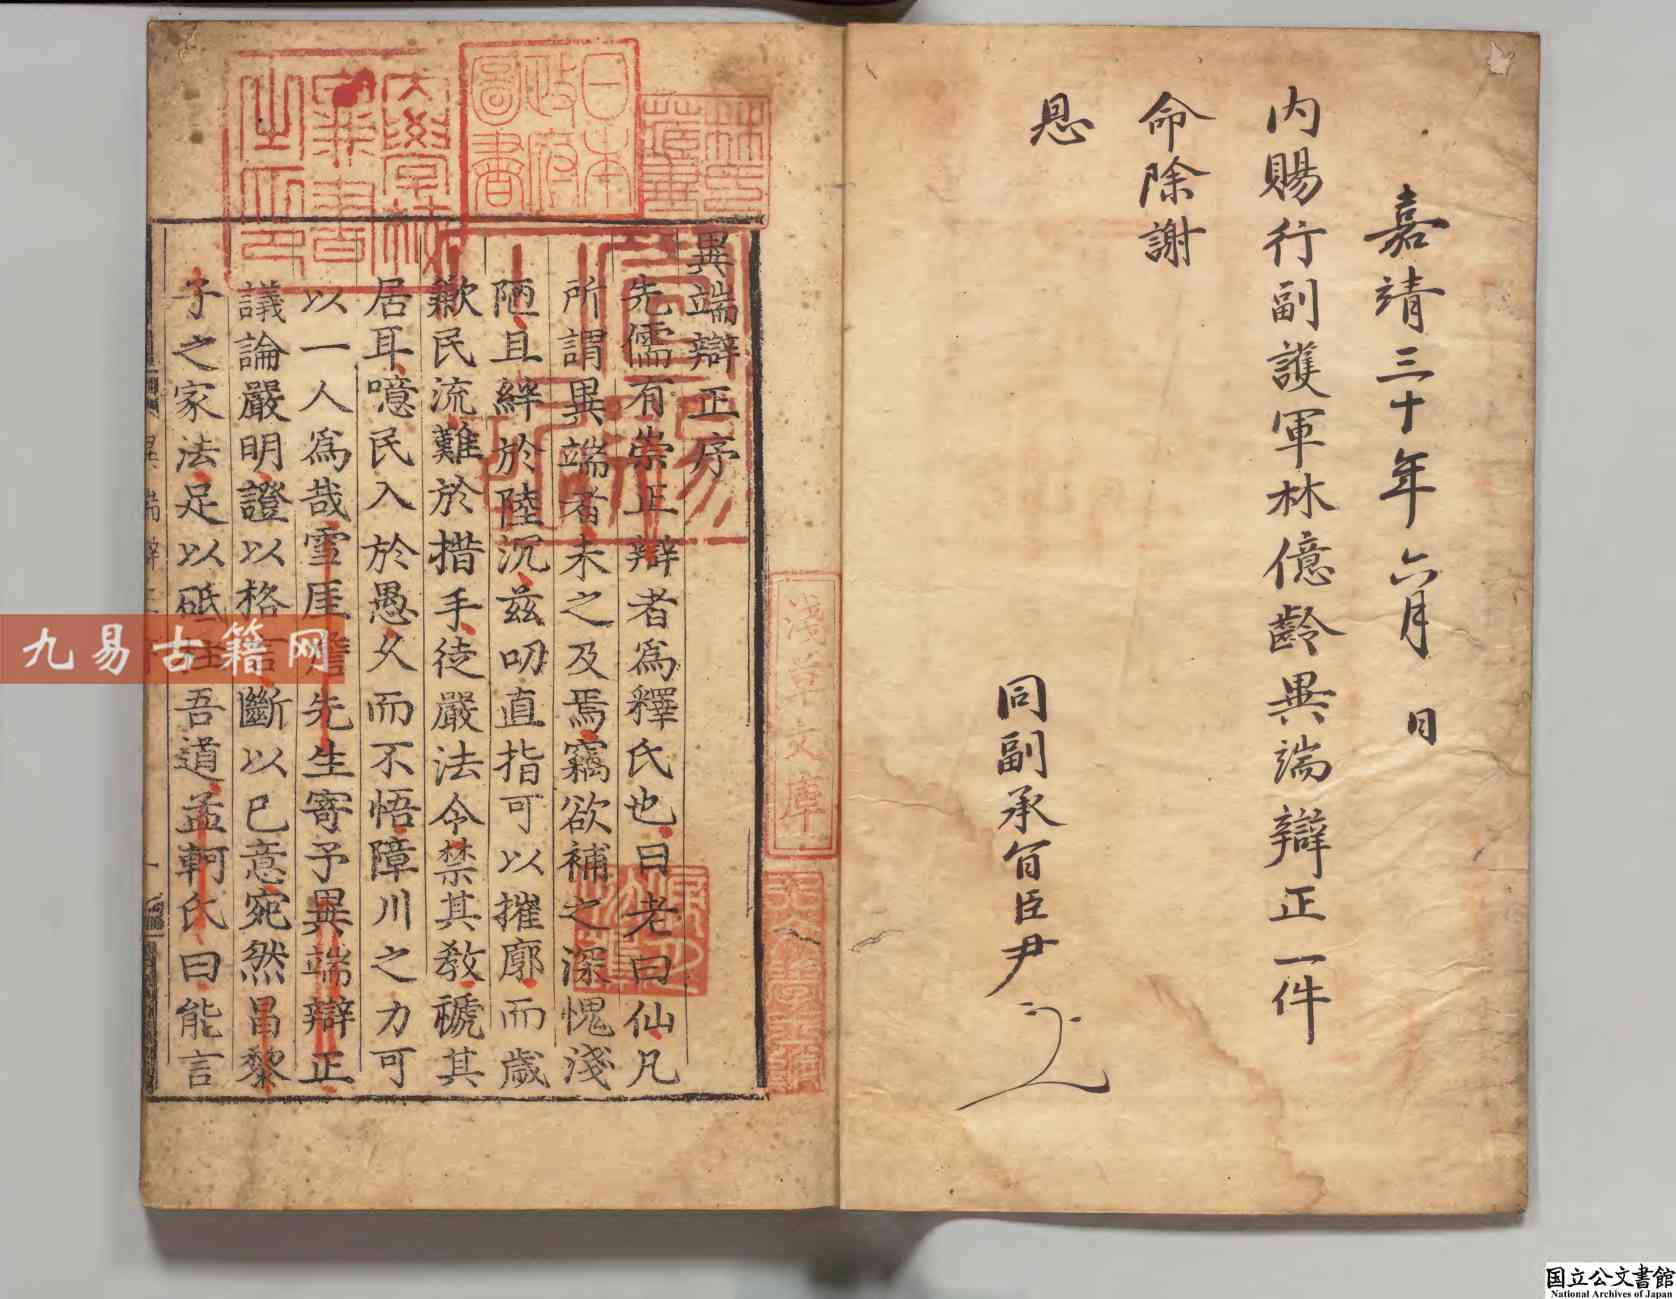 嘉靖三十年六月 日
内賜行副護軍林億齡異端辯正一件
命除謝
恩
同副承旨臣尹
日本政府圖書
淺草文庫
林氏藏書
異端辯正序
先儒有崇正辯者爲釋氏也曰老曰仙凡
所謂異端者未之及焉竊欲補之深愧淺
陋且絆於陸沉茲叨直指可以摧廓而歲
歉民流難於措手徒嚴法令禁其教褫其
居耳噫民入於愚久而不悟障川之力可
以一人爲哉雪厓詹先生寄予異端辯正
議論嚴明證以格言斷以己意宛然昌黎
子之家法足以砥柱吾道孟軻氏曰能言
九易古籍网
国立公文書館
National Archives of Japan